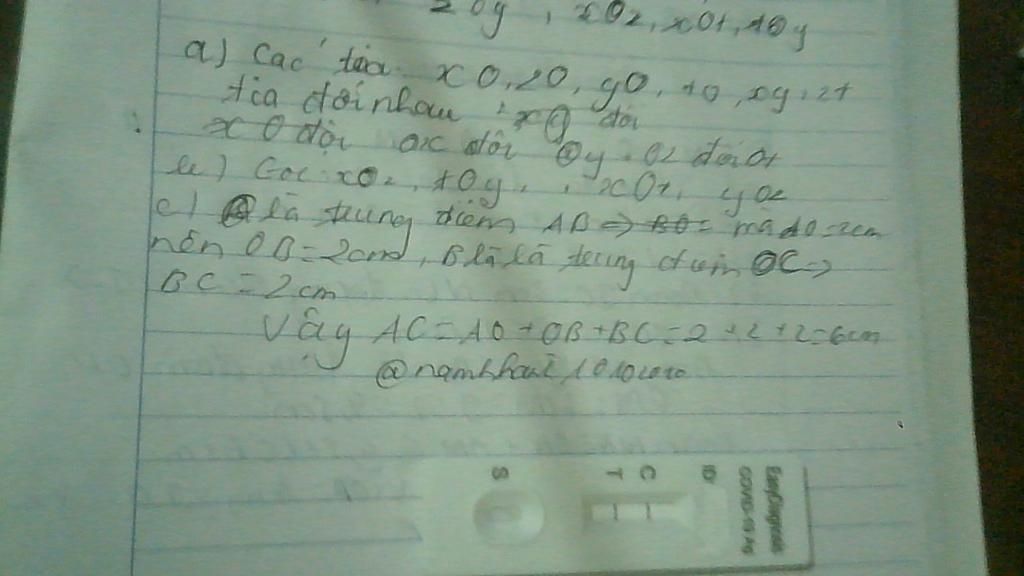 zOy, xOz, xOt, tOy
a) Các tia xO, zO, yO, tO, xy, zt
tia đối nhau xO đối
xO đối Ox đối Oy. Oz đối Ot
b) Góc xOz, tOy, , xOt, yOz
c) O là trung điểm AB => BO = mà AO=2cm
nên OB=2cm, B là là trung điểm OC =>
BC = 2cm
Vậy AC=AO+OB+BC=2+2+2=6cm
EasyDiagnosis
COVID-19 Ag
ID
C
T
S